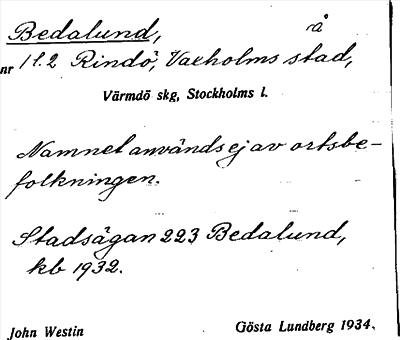 Bedalund, rå
nr 1 l. 2 Rindö, Vaxholms stad,
Värmdö skg, Stockholms l.
Namnet används ej av ortsbe-
folkningen.
Stadsägan 223 Bedalund,
kb 1932.
John Westin Gösta Lundberg 1934.